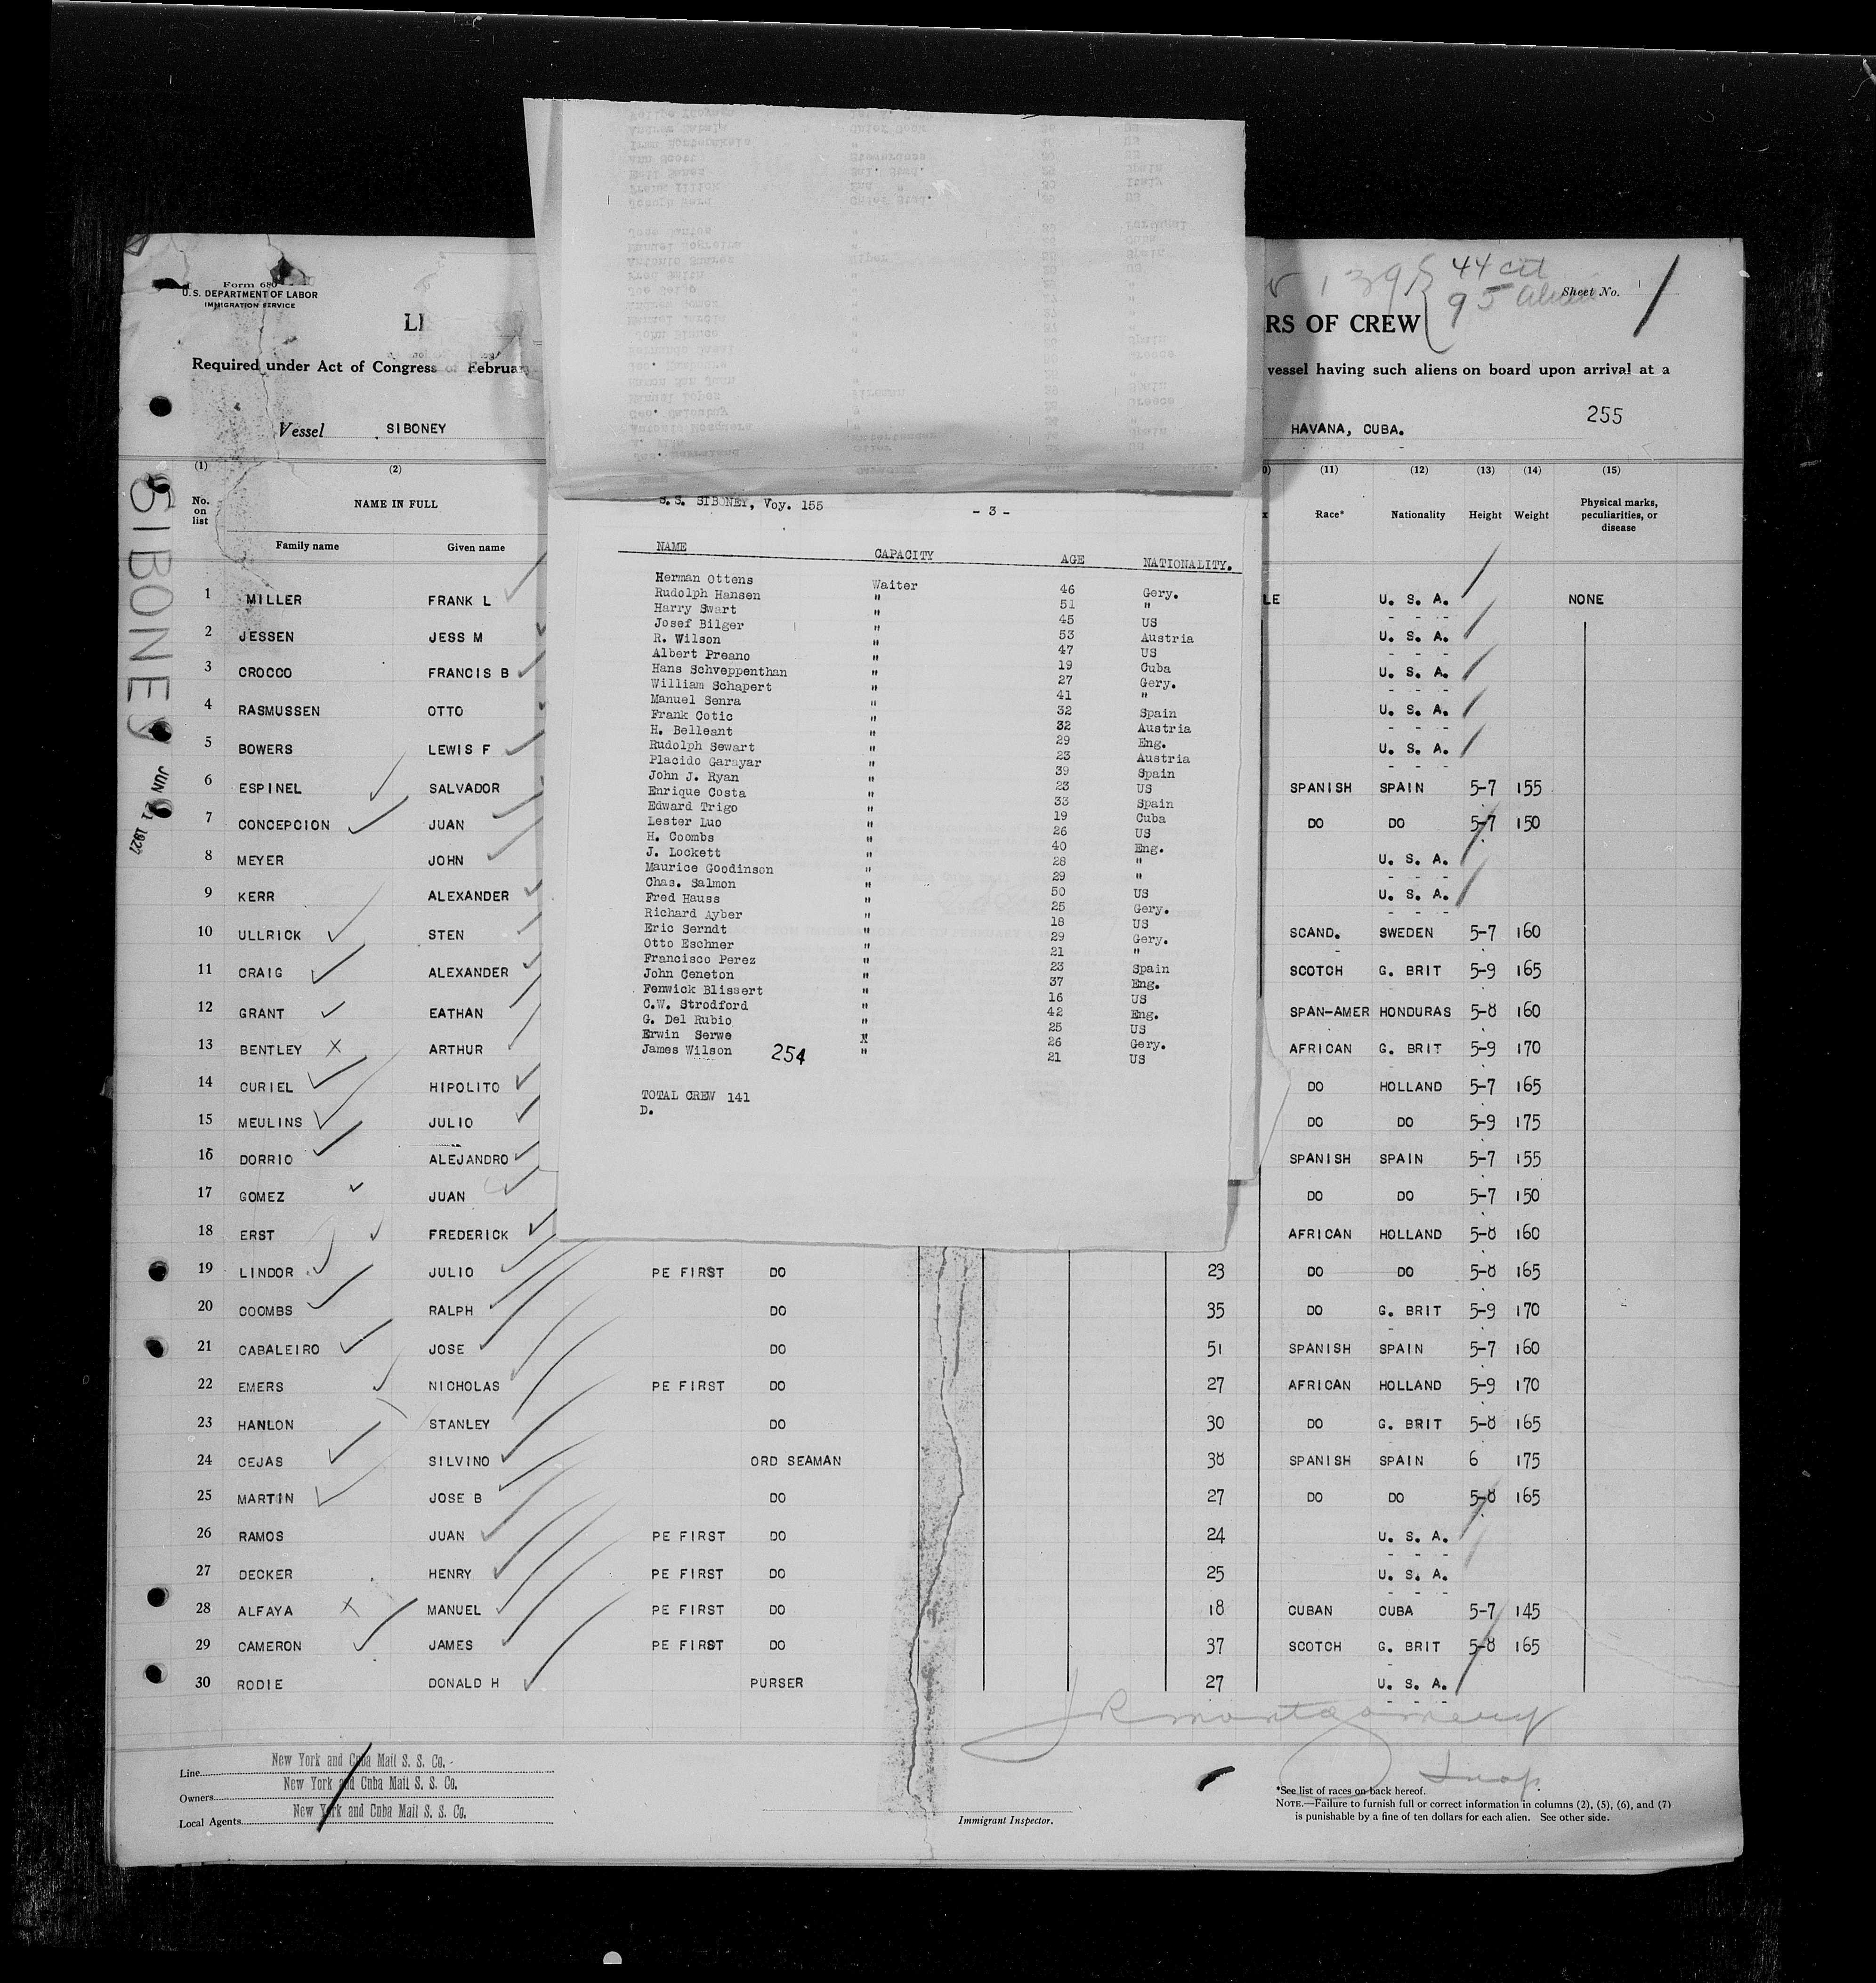 Form 680
U.S. DEPARTMENT OF LABOR
IMMIGRATION SERVICE
139 { 44 cit
95 Alien
Sheet No. 1
LI
RS OF CREW
Required under Act of Congress of Februar
vessel having such aliens on board upon arrival at a
255
Vessel SIBONEY
HAVANA, CUBA.
SIBONEY
JUN 21 1927
(1) (2) (11) (12) (13) (14) (15)
No. on list NAME IN FULL Race* Nationality Height Weight Physical marks, peculiarities, or disease
Family name Given name
1 MILLER FRANK L LE U. S. A. NONE
2 JESSEN JESS M U. S. A.
3 CROCCO FRANCIS B U. S. A.
4 RASMUSSEN OTTO U. S. A.
5 BOWERS LEWIS F U. S. A.
6 ESPINEL SALVADOR SPANISH SPAIN 5-7 155
7 CONCEPCION JUAN DO DO 5-7 150
8 MEYER JOHN U. S. A.
9 KERR ALEXANDER U. S. A.
10 ULLRICK STEN SCAND. SWEDEN 5-7 160
11 CRAIG ALEXANDER SCOTCH G. BRIT 5-9 165
12 GRANT EATHAN SPAN-AMER HONDURAS 5-8 160
13 BENTLEY X ARTHUR AFRICAN G. BRIT 5-9 170
14 CURIEL HIPOLITO DO HOLLAND 5-7 165
15 MEULINS JULIO DO DO 5-9 175
16 DORRIO ALEJANDRO SPANISH SPAIN 5-7 155
17 GOMEZ JUAN DO DO 5-7 150
18 ERST FREDERICK AFRICAN HOLLAND 5-8 160
19 LINDOR JULIO PE FIRST DO 23 DO DO 5-8 165
20 COOMBS RALPH DO 35 DO G. BRIT 5-9 170
21 CABALEIRO JOSE DO 51 SPANISH SPAIN 5-7 160
22 EMERS NICHOLAS PE FIRST DO 27 AFRICAN HOLLAND 5-9 170
23 HANLON STANLEY DO 30 DO G. BRIT 5-8 165
24 CEJAS SILVINO ORD SEAMAN 38 SPANISH SPAIN 6 175
25 MARTIN JOSE B DO 27 DO DO 5-8 165
26 RAMOS JUAN PE FIRST DO 24 U. S. A.
27 DECKER HENRY PE FIRST DO 25 U. S. A.
28 ALFAYA X MANUEL PE FIRST DO 18 CUBAN CUBA 5-7 145
29 CAMERON JAMES PE FIRST DO 37 SCOTCH G. BRIT 5-8 165
30 RODIE DONALD H PURSER 27 U. S. A.
S.S. SIBONEY, Voy. 155 - 3 -
NAME CAPACITY AGE NATIONALITY.
Herman Ottens Waiter 46 Gery.
Rudolph Hansen " 51 "
Harry Swart " 45 US
Josef Bilger " 53 Austria
R. Wilson " 47 US
Albert Preano " 19 Cuba
Hans Schveppenthan " 27 Gery.
William Schapert " 41 "
Manuel Senra " 32 Spain
Frank Cotic " 32 Austria
H. Belleant " 29 Eng.
Rudolph Sewart " 23 Austria
Placido Garayar " 39 Spain
John J. Ryan " 23 US
Enrique Costa " 33 Spain
Edward Trigo " 19 Cuba
Lester Luo " 26 US
H. Coombs " 40 Eng.
J. Lockett " 28 "
Maurice Goodinson " 29 "
Chas. Salmon " 50 US
Fred Hauss " 25 Gery.
Richard Ayber " 18 US
Eric Serndt " 29 Gery.
Otto Eschner " 21 "
Francisco Perez " 23 Spain
John Ceneton " 37 Eng.
Fenwick Blissert " 16 US
C.W. Strodford " 42 Eng.
G. Del Rubio " 25 US
Erwin Serwe " 26 Gery.
James Wilson " 21 US
254
TOTAL CREW 141
D.
JR Montgomery
Insp.
Line New York and Cuba Mail S. S. Co.
Owners New York and Cuba Mail S. S. Co.
Local Agents New York and Cuba Mail S. S. Co.
Immigrant Inspector.
*See list of races on back hereof.
NOTE.—Failure to furnish full or correct information in columns (2), (5), (6), and (7)
is punishable by a fine of ten dollars for each alien. See other side.